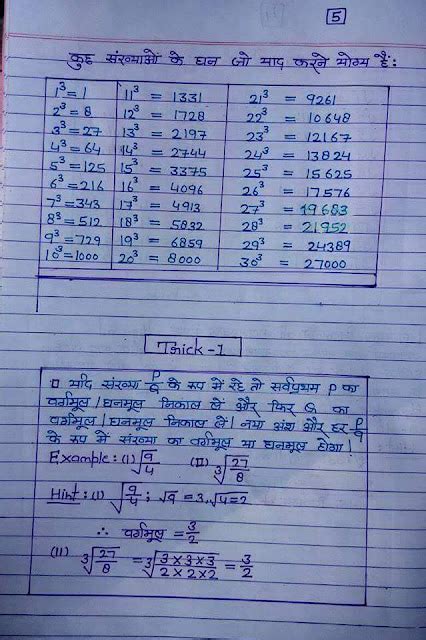 5
कुछ संख्याओं के घन जो याद करने योग्य है:
1³=1 11³ = 1331 21³ = 9261
2³=8 12³ = 1728 22³ = 10648
3³=27 13³ = 2197 23³ = 12167
4³=64 14³ = 2744 24³ = 13824
5³=125 15³ = 3375 25³ = 15625
6³=216 16³ = 4096 26³ = 17576
7³=343 17³ = 4913 27³ = 19683
8³=512 18³ = 5832 28³ = 21952
9³=729 19³ = 6859 29³ = 24389
10³=1000 20³ = 8000 30³ = 27000
Trick-1
यदि संख्या P/Q के रूप में रहे तो सर्वप्रथम P का
वर्गमूल/घनमूल निकाल लें और फिर Q का
वर्गमूल/घनमूल निकाल लें। नया अंश और हर P/Q
के रूप में संख्या का वर्गमूल या घनमूल होगा!
Example: (I) √9/4 (II) ³√27/8
Hint: (I) √9/4; √9 = 3, √4=2
∴ वर्गमूल = 3/2
(II) ³√27/8 = ³√3×3×3/2×2×2 = 3/2